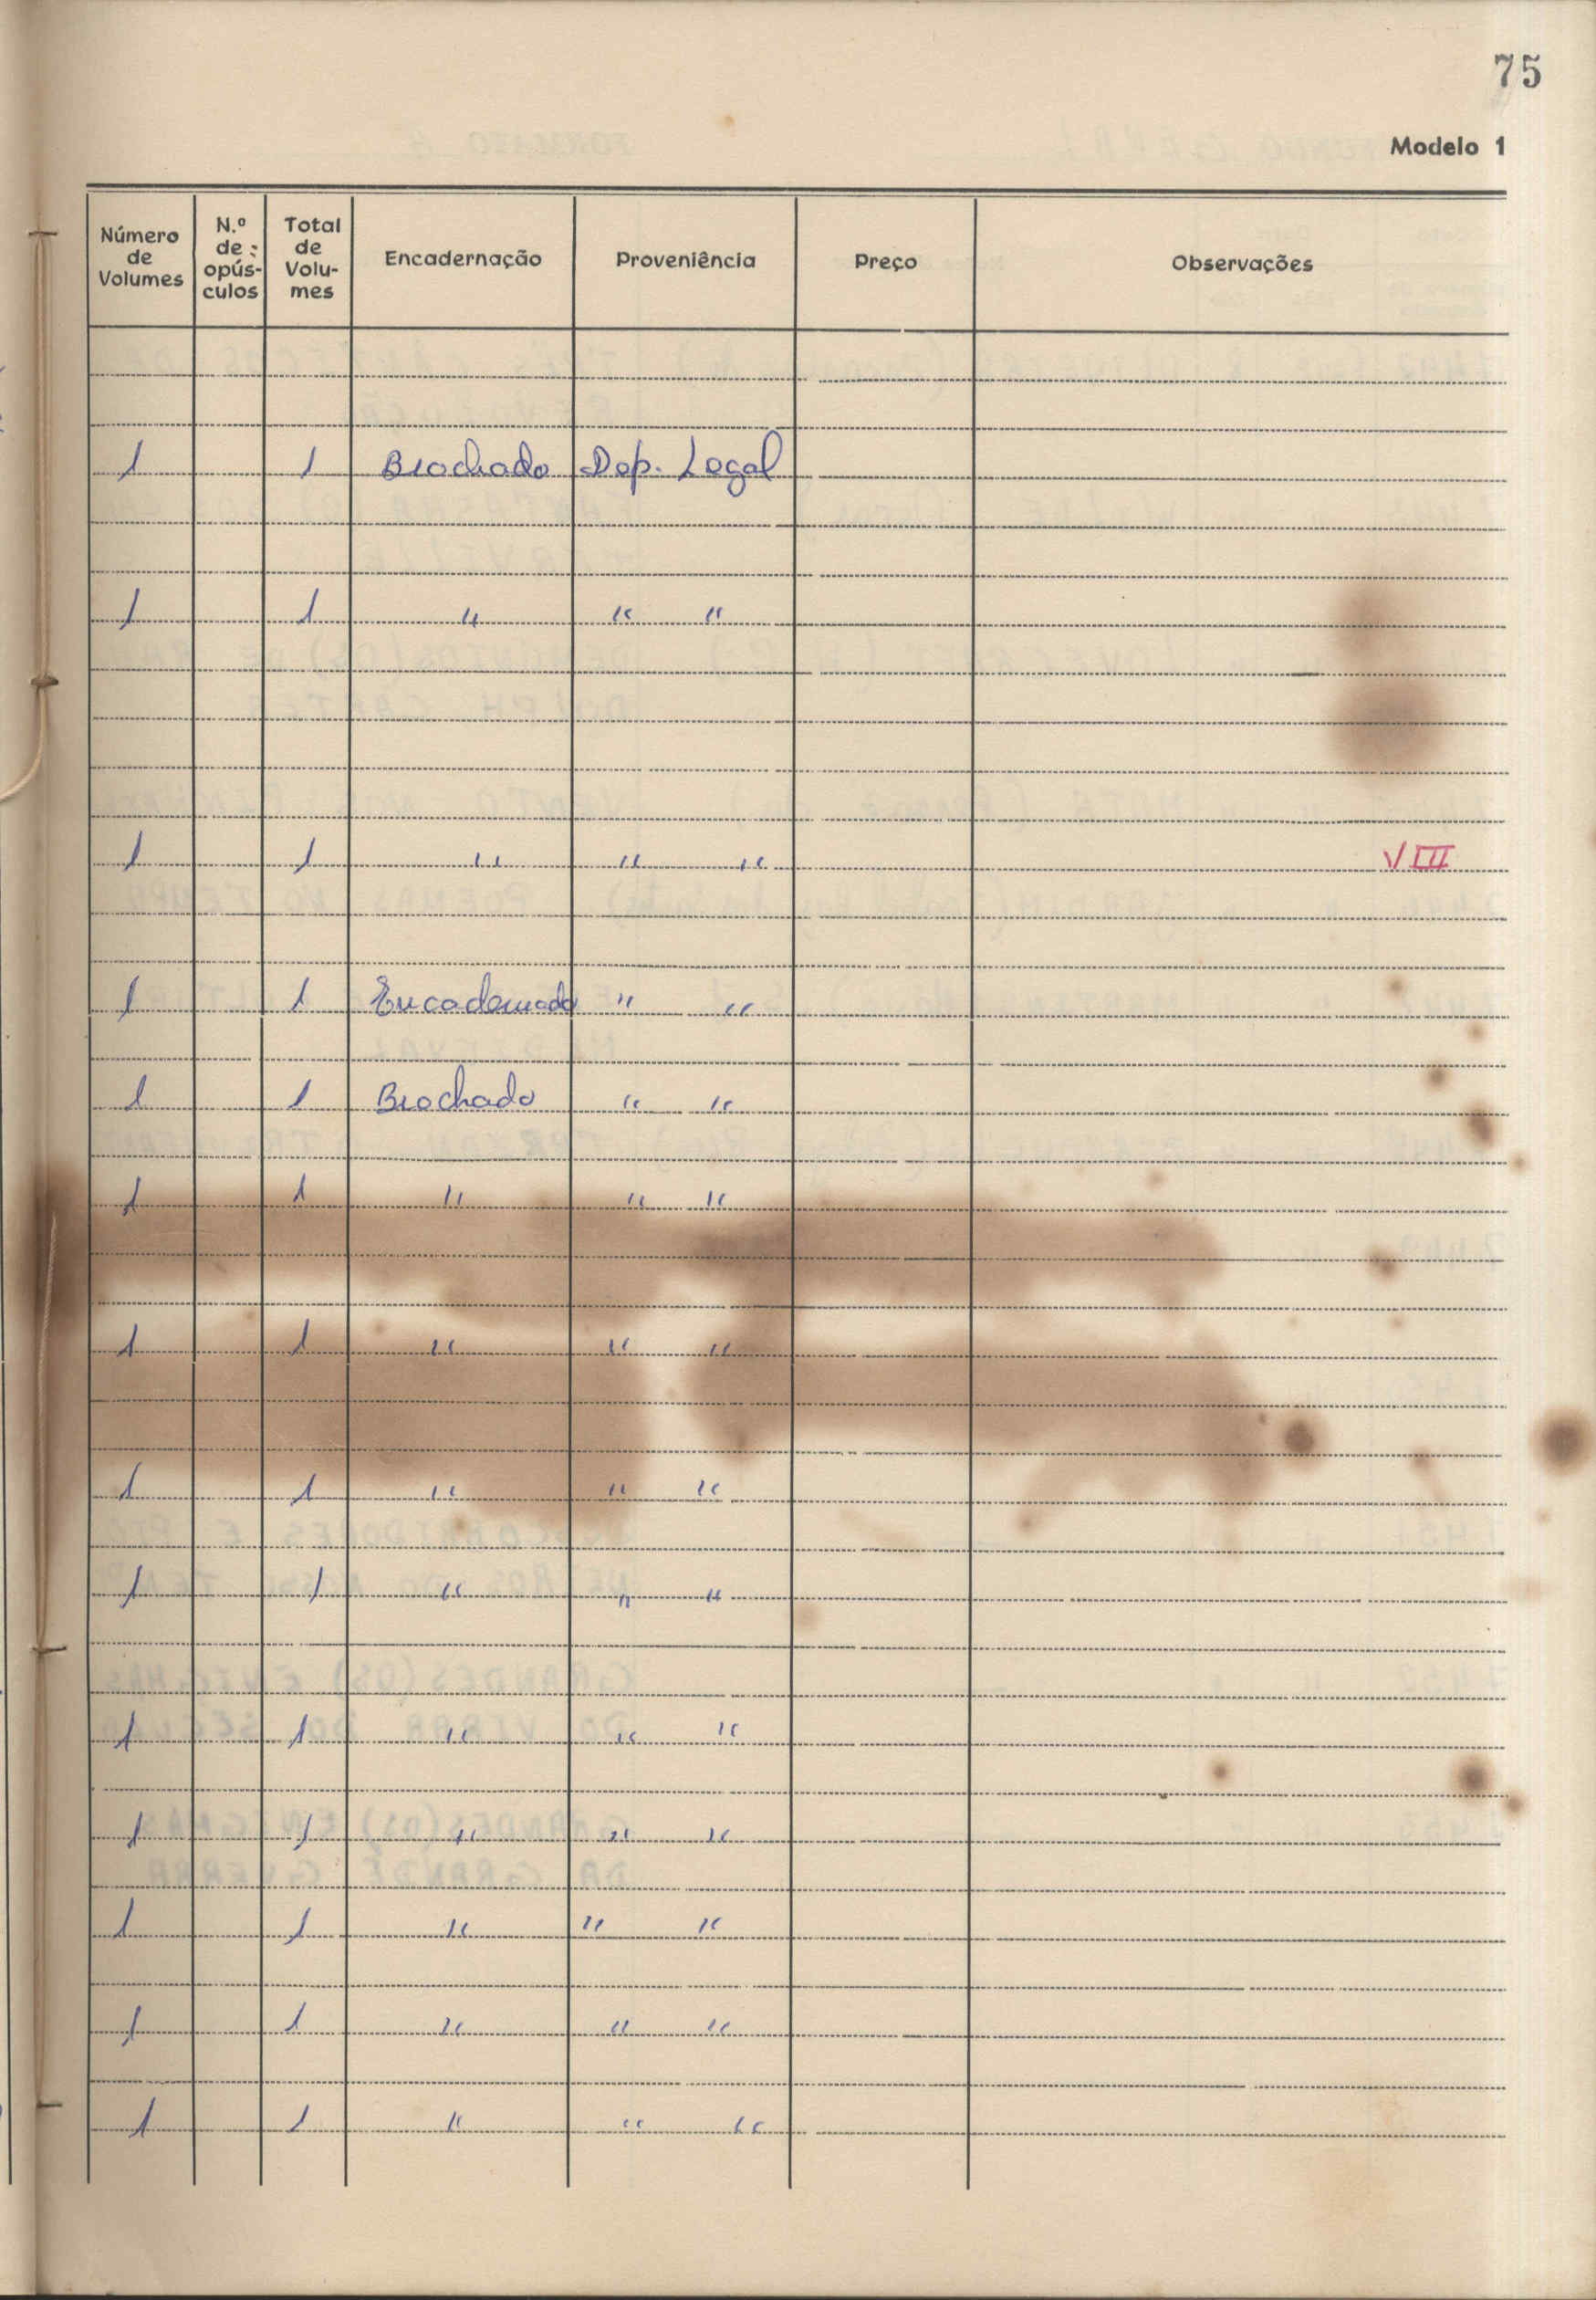 75
Modelo 1
Número de Volumes	N.º de opús-culos	Total de Volu-mes	Encadernação	Proveniência	Preço	Observações
1	1	Brochado	Dep. Legal
1	1	"	"	"
1	1	"	"	"	VIII
1	1	Encadernado	"	"
1	1	Brochado	"	"
1	1	"	"	"
1	1	"	"	"
1	1	"	"	"
1	1	"	"	"
1	1	"	"	"
1	1	"	"	"
1	1	"	"	"
1	1	"	"	"
1	1	"	"	"